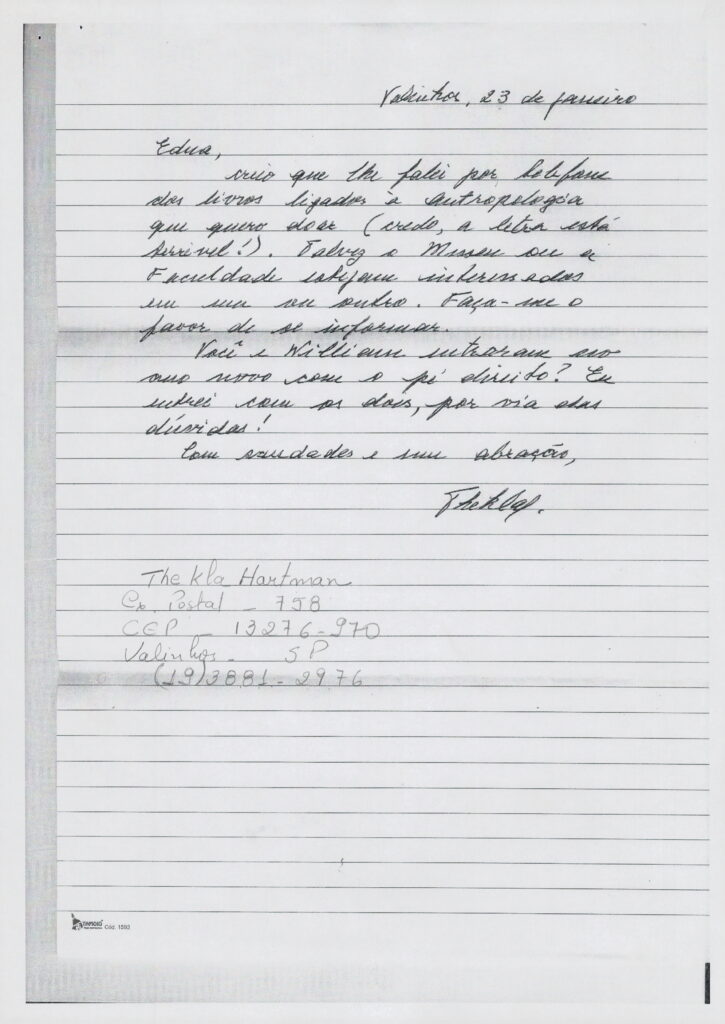 Valinhos, 23 de janeiro
Edna,
creio que lhe falei por telefone
dos livros ligados à antropologia
que quero doar (credo, a letra está
terrível!). Talvez o Museu ou a
Faculdade estejam interessados
em um ou outro. Faça-me o
favor de se informar.
Você e William entraram no
ano novo com o pé direito? Eu
entrei com os dois, por via das
dúvidas!
Com saudades e um abração,
Thekla.
Thekla Hartman
Cx. Postal - 758
CEP - 13276-970
Valinhos - SP
(19)3881-2976
Cód. 1593